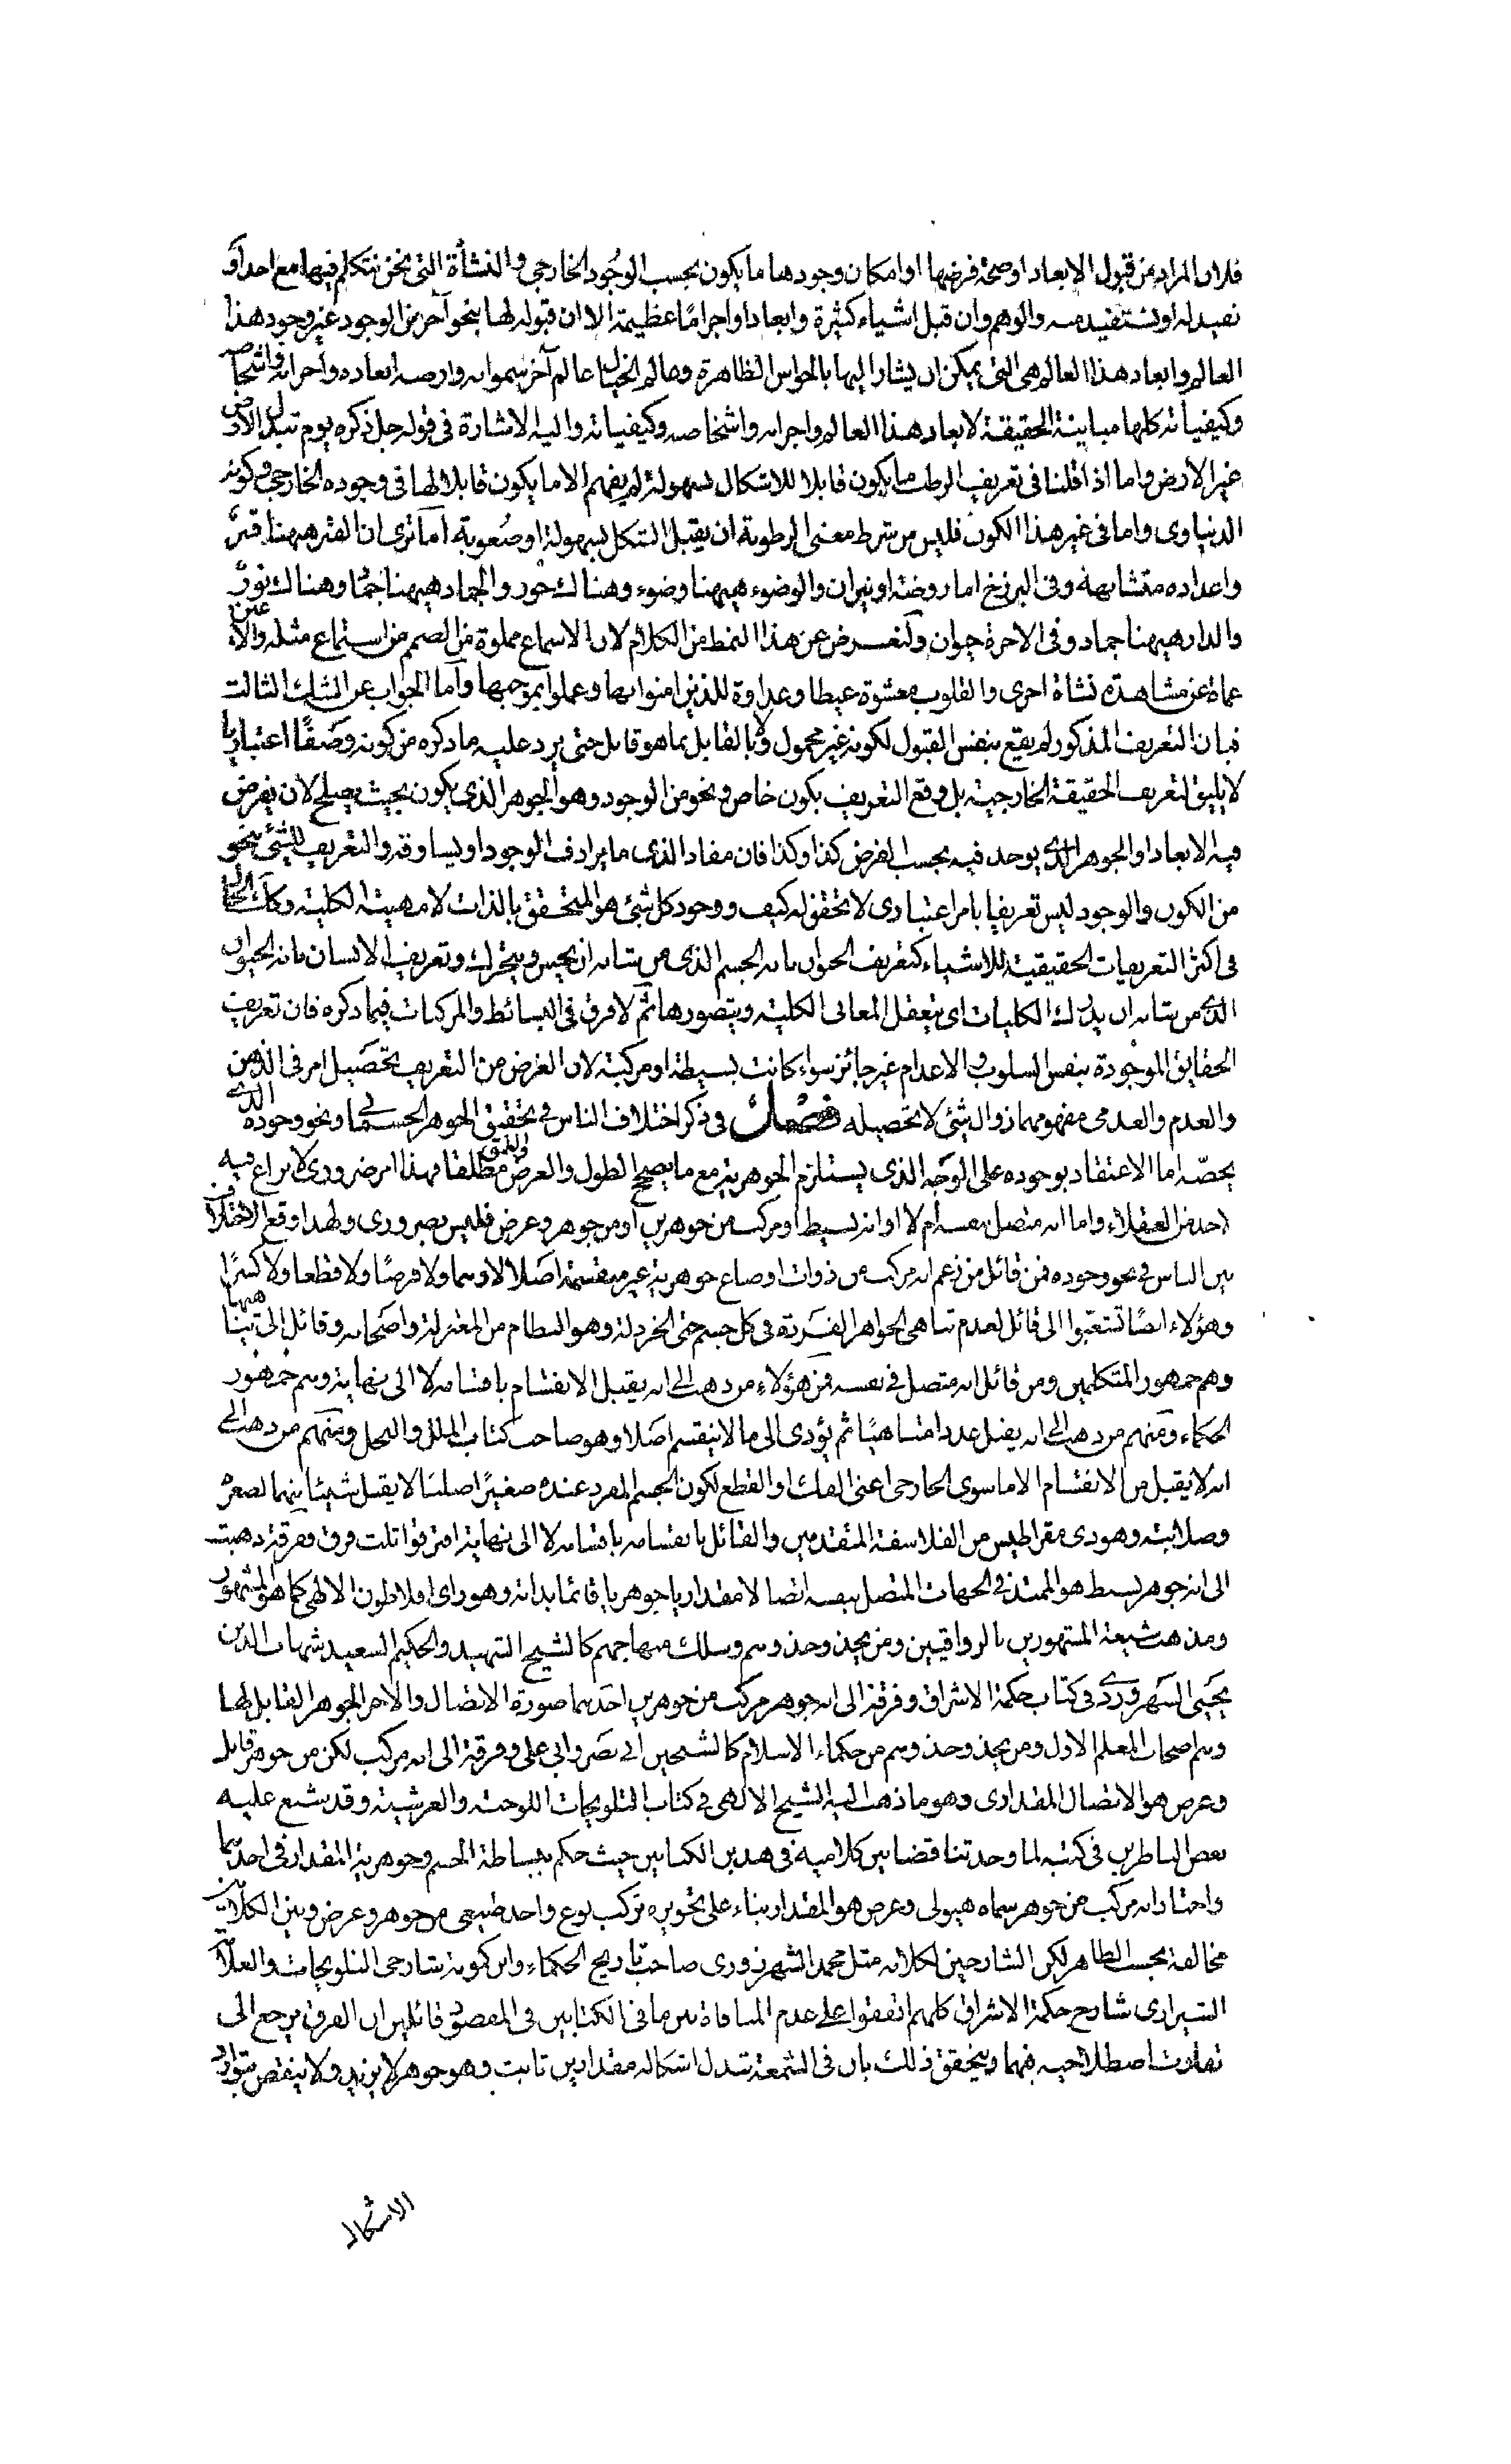 فلان المراد من قبول الابعاد او صحة فرضها او امكان وجودها ما يكون بحسب الوجود الخارجى والنشأة التى نحن نتكلم فيها مع احد او
نفيد له او نستفيد منه والوهم وان قبل اشياء كثيرة وابعادا واجراما عظيمة الا ان قبوله لها بنحو آخر من الوجود غير وجود هذا
العالم وابعاد هذا العالم هى التى يمكن ان يشار اليها بالحواس الظاهرة وعالم الخيال عالم آخر سمواته وارضه ابعاده واجرامه واشخاصه
وكيفياته كلها مباينة الحقيقة لابعاد هذا العالم واجرامه واشخاصه وكيفياته واليه الاشارة فى قوله جل ذكره يوم تبدل الارض
غير الارض واما اذا قلنا فى تعريف الرطب ما يكون قابلا للاشكال بسهولة لم يفهم الا ما يكون قابلا لها فى وجوده الخارجى وكونه
الدنياوى واما فى غير هذا الكون فليس من شرط معنى الرطوبة ان يقبل الشكل بسهولة او صعوبة أما ترى ان القبر ههنا قبر
واعداده متشابهة وفى البرزخ اما روضة او نيران والوضوء ههنا وضوء وهناك حور والجماد ههنا جماد وهناك نور
والدار ههنا جماد وفى الاخرة حيوان ولنعرض عن هذا النمط من الكلام لان الاسماع مملوة من الصمم من استماع مثله والاعين
عماة عن مشاهدة نشأة اخرى والقلوب مغشوة غيظا وعداوة للذين امنوا بها وعملوا بموجبها وأما الجواب عن الشك الثالث
فبان التعريف المذكور لم يقع بنفس القبول لكونه غير محمول ولا بالقابل بما هو قابل حتى يرد عليه ما ذكره من كونه وصفا اعتباريا
لا يليق لتعريف الحقيقة الخارجية بل وقع التعريف بكون خاص ونحو من الوجود وهو الجوهر الذى يكون بحيث يصلح لان يفرض
فيه الابعاد او الجوهر الذى يوجد فيه بحسب الفرض كذا وكذا فان مفاد الذى ما يرادف الوجود او يساوقه والتعريف للشئ بنحو
من الكون والوجود ليس تعريفا بامر اعتبارى لا تحقق له كيف ووجود كل شئ هو المتحقق بالذات لا مهيته الكلية وكذلك الحال
فى اكثر التعريفات الحقيقية للاشياء كتعريف الحيوان بانه الجسم الذى من شانه ان يحس ويتحرك وتعريف الانسان بانه الحيوان
الذى من شانه ان يدرك الكليات اى يتعقل المعانى الكلية ويتصورها ثم لا فرق فى البسائط والمركبات فيما ذكره فان تعريف
الحقايق الموجودة بنفس السلوب والاعدام غير جائز سواء كانت بسيطة او مركبة لان الغرض من التعريف تحصيل امر فى الذهن
والعدم والعدمى مفهومهما زوال شئ لا تحصيله فصل فى ذكر اختلاف الناس فى تحقيق الجوهر الجسمانى ونحو وجوده الذى
يخصه اما الاعتقاد بوجوده على الوجه الذى يستلزم الجوهرية مع ما يصحح الطول والعرض والعمق مطلقا فهذا امر ضرورى لا نزاع فيه
لاحد من العقلاء واما انه متصل بنفسه ام لا او انه بسيط او مركب من جوهرين او من جوهر وعرض فليس بضرورى ولهذا وقع الاختلاف
بين الناس فى نحو وجوده فمن قائل من زعم انه مركب من ذوات اوضاع جوهرية غير منقسمة اصلا لا وهما ولا فرضا ولا قطعا ولا كسرا
وهؤلاء ايضا تشعبوا الى قائل لعدم تناهى الجواهر الفردة فى كل جسم حتى الخردلة وهو النظام من المعتزلة واصحابه وقائل الى تناهيها
وهم جمهور المتكلمين ومن قائل انه متصل فى نفسه فمن هؤلاء من ذهب الى انه يقبل الانقسام باقسامه لا الى نهاية وهم جمهور
الحكماء ومنهم من ذهب الى انه يقبل عددا متناهيا ثم يؤدى الى ما لا ينقسم اصلا وهو صاحب كتاب الملل والنحل ومنهم من ذهب الى
انه لا يقبل من الانقسام الا ما سوى الخارجى اعنى الفك او القطع لكون الجسم المفرد عنده صغيرا صلبا لا يقبل شيئا منهما لصغره
وصلابته وهو ذى مقراطيس من الفلاسفة المتقدمين والقائل بانقسامه باقسامه لا الى نهاية افترقوا ثلث فرق ففرقة ذهبت
الى انه جوهر بسيط هو الممتد فى الجهات المتصل بنفسه اتصالا مقداريا جوهريا قائما بذاته وهو راى افلاطون الالهى كما هو المشهور
ومذهب شيعته المشهورين بالرواقيين ومن يحذ وحذوهم وسلك منهاجهم كالشيخ الشهيد والحكيم السعيد شهاب الدين
يحيى السهروردى فى كتاب حكمة الاشراق وفرقة الى انه جوهر مركب من جوهرين احدهما صورة الاتصال والاخر الجوهر القابل لها
وهم اصحاب المعلم الاول ومن يحذ وحذوهم من حكماء الاسلام كالشيخين ابى نصر وابى على وفرقة الى انه مركب لكن من جوهر قابل
وعرض هو الاتصال المقدارى وهو ما ذهب اليه الشيخ الالهى فى كتاب التلويحات اللوحية والعرشية وقد شنع عليه
بعض الناظرين فى كتبه لما وجد تناقضا بين كلاميه فى هذين الكتابين حيث حكم ببساطة الجسم وجوهرية المقدار فى احدهما
واختار انه مركب من جوهر سماه هيولى وعرض هو المقدار بناء على تجويزه تركب نوع واحد طبيعى من جوهر وعرض وبين الكلامين
مخالفة بحسب الظاهر لكن الشارحين لكلامه مثل محمد الشهرزورى صاحب تاريخ الحكماء وابن كمونة شارحى التلويحات والعلامة
الشيرازى شارح حكمة الاشراق كلهم اتفقوا على عدم المنافاة بين ما فى الكتابين فى المقصود قائلين ان الفرق يرجع الى
تفاوت اصطلاحيه فيهما ويتحقق ذلك بان فى الشمعة تبدل اشكاله مقدارين ثابت وهو جوهر لا يزيد ولا ينقص بتوارد
الاشكال